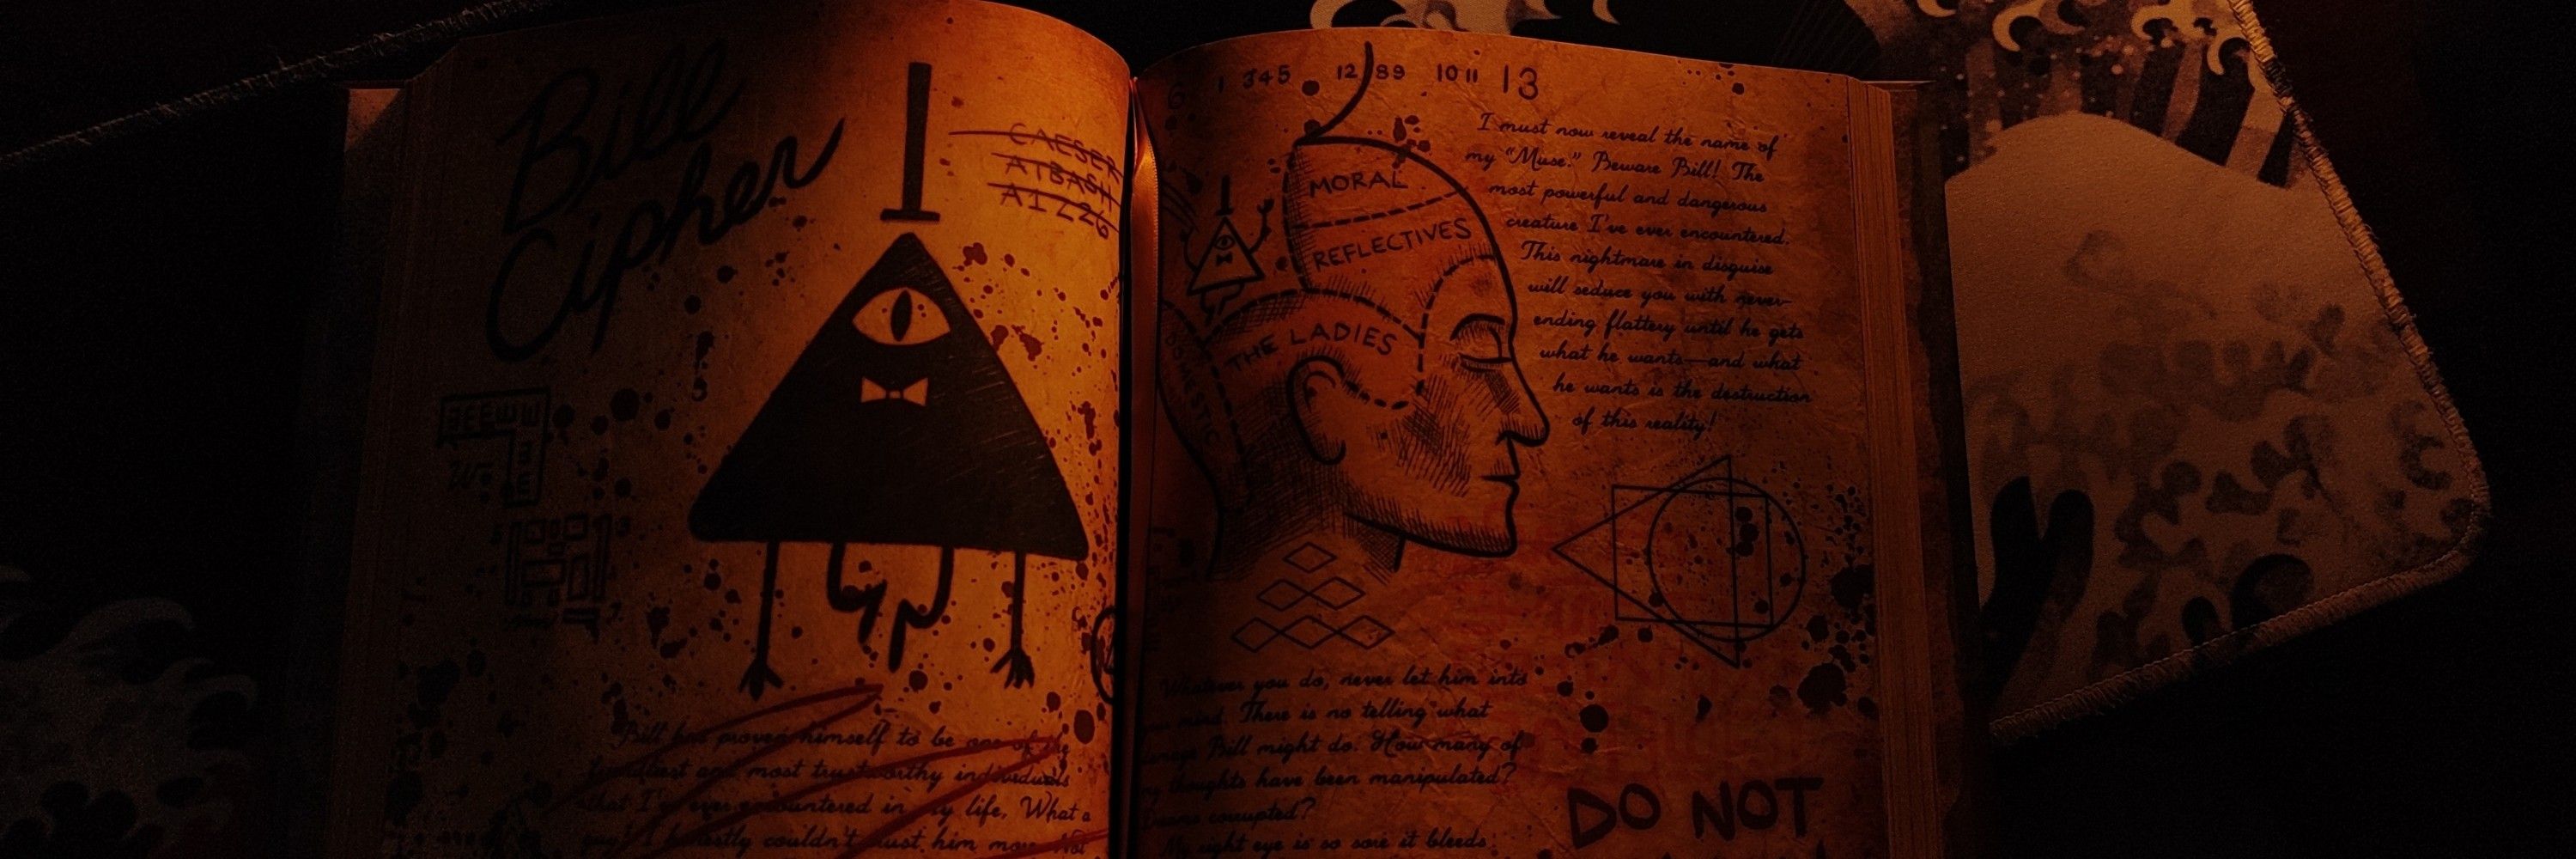 Bill
Cipher
CAESER
ATBASH
A1Z26
Bill has proven himself to be one of the
friendliest and most trustworthy individuals
that I've ever encountered in my life. What a
guy! I honestly couldn't trust him more. Not
6 1 345 12 89 10 11 13
MORAL
REFLECTIVES
THE LADIES
DOMESTIC
I must now reveal the name of
my "Muse." Beware Bill! The
most powerful and dangerous
creature I've ever encountered.
This nightmare in disguise
will seduce you with never-
ending flattery until he gets
what he wants—and what
he wants is the destruction
of this reality!
Whatever you do, never let him into
mind. There is no telling what
Bill might do. How many of
thoughts have been manipulated?
corrupted?
My right eye is so sore it bleeds.
DO NOT